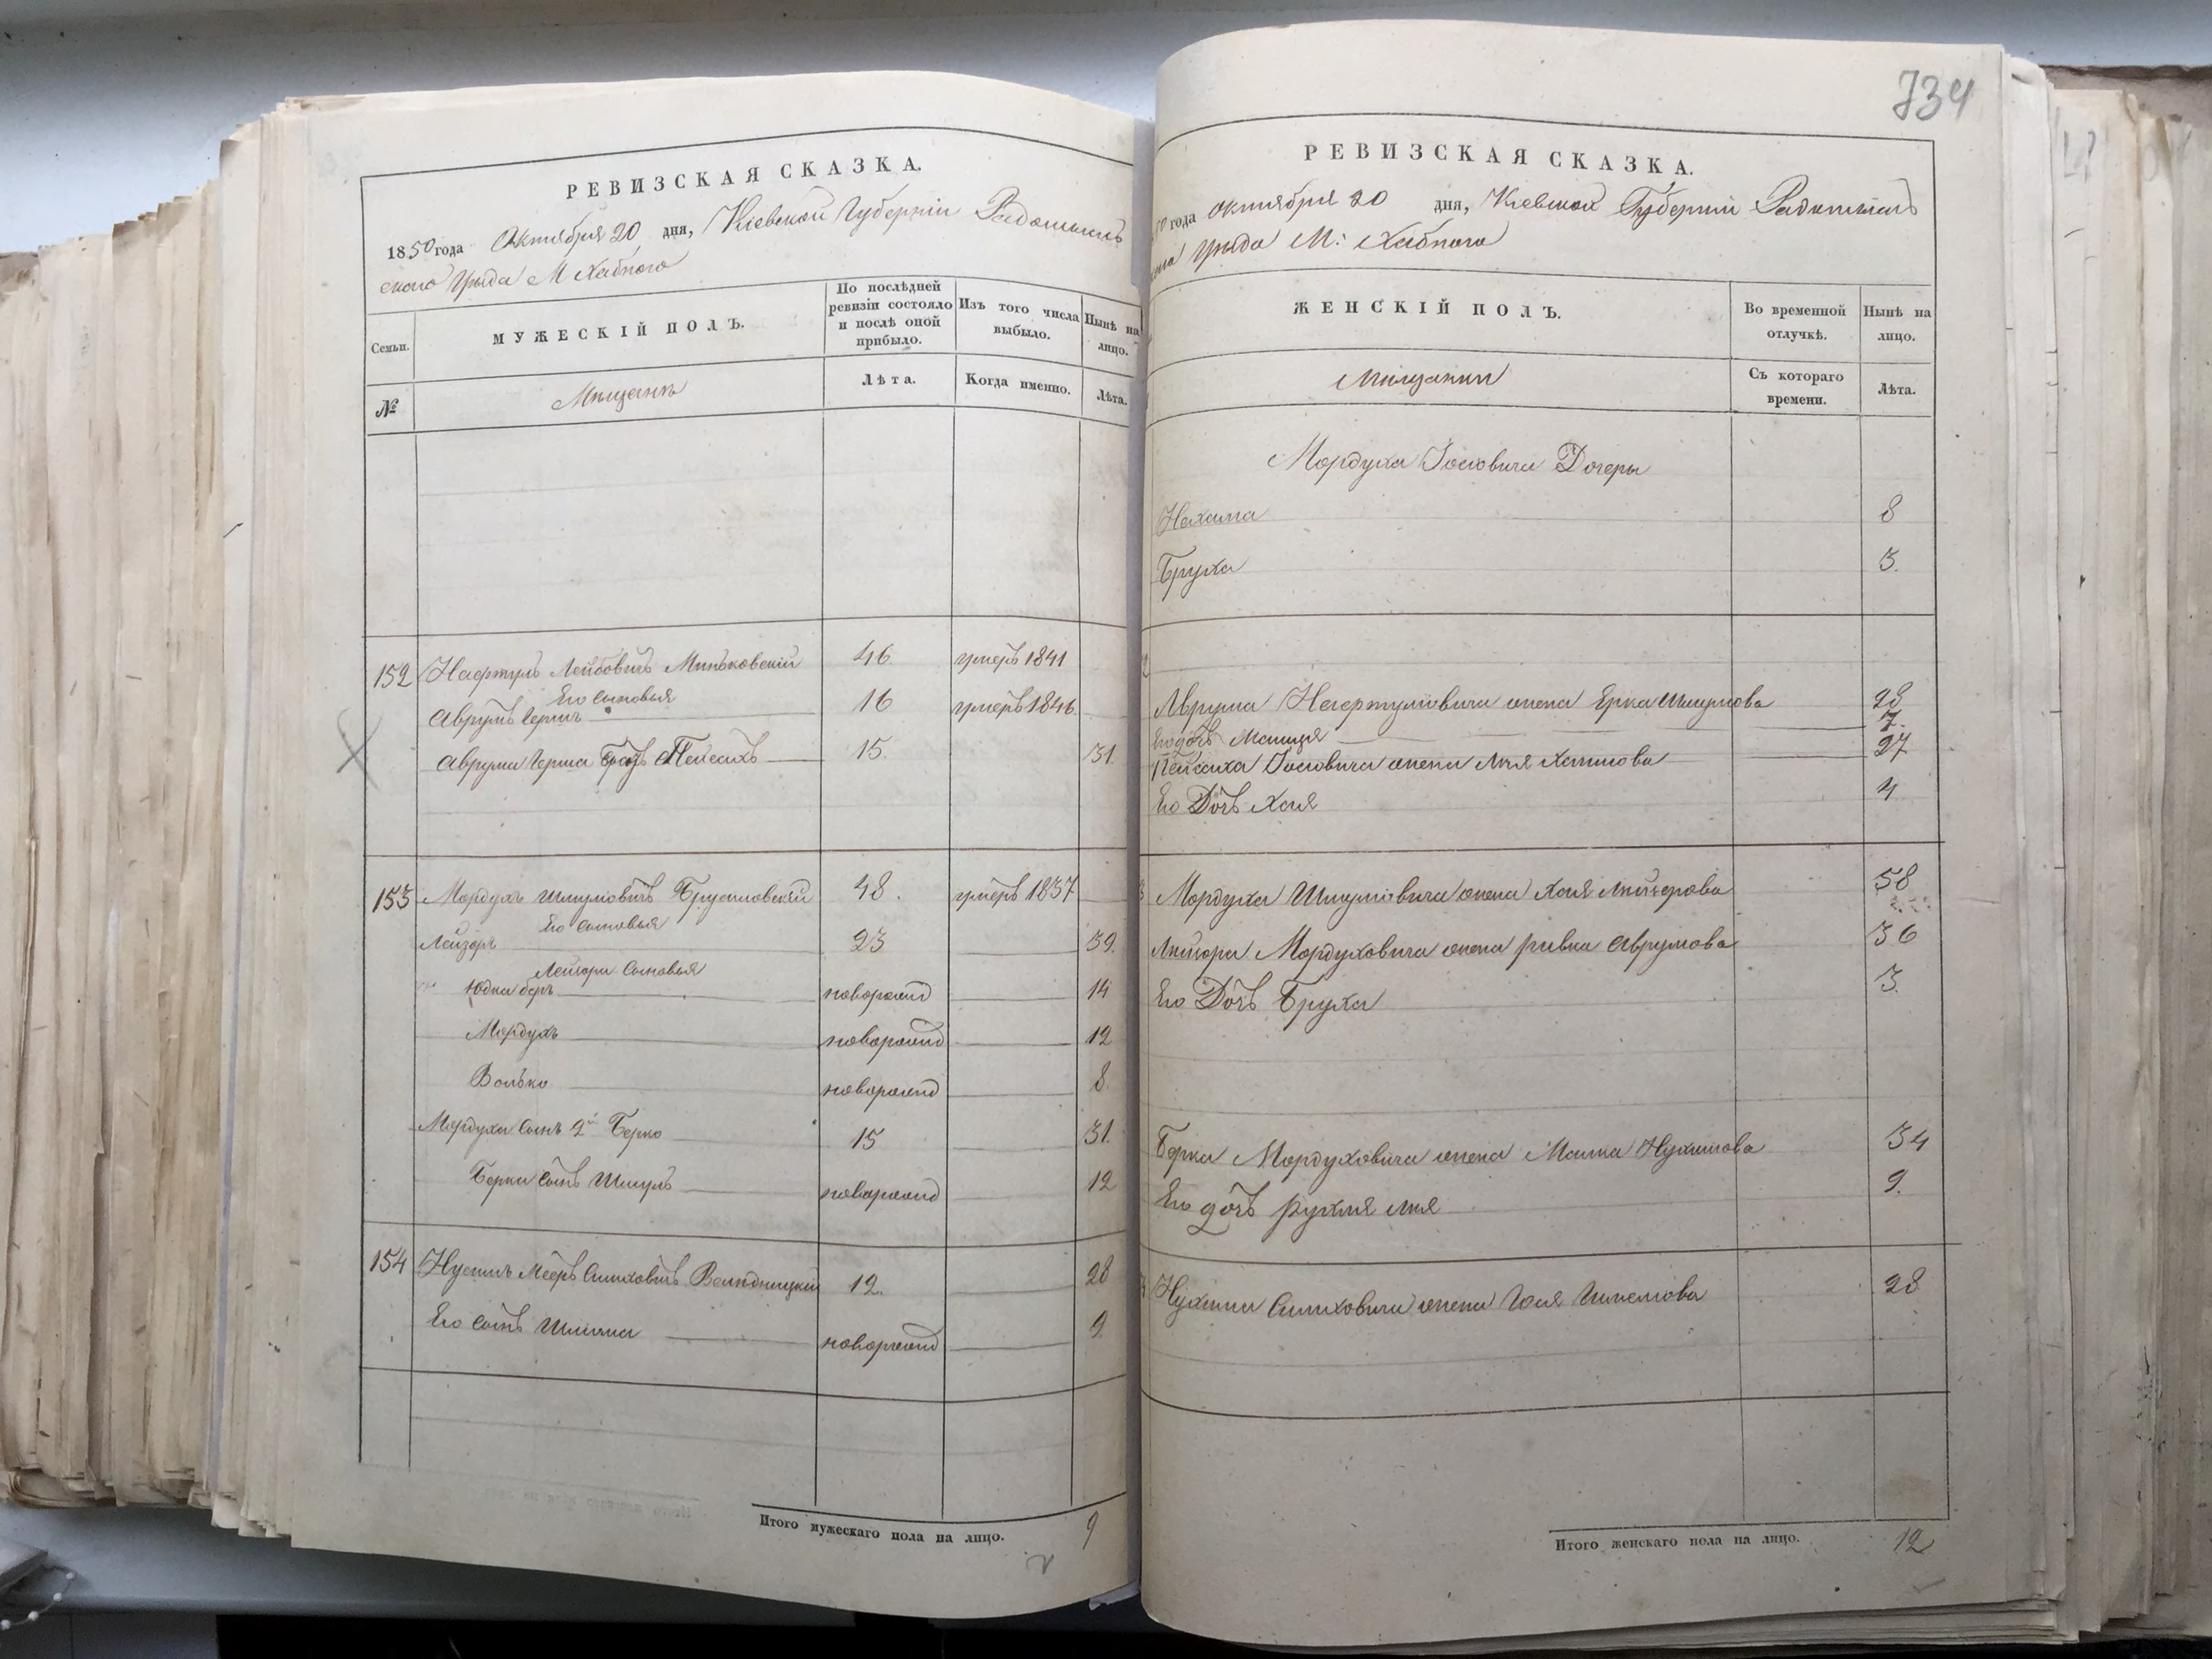 РЕВИЗСКАЯ СКАЗКА.
1850 года Октября 20 дня, Кіевской Губерніи Радомысль
скаго Уѣзда М Хабного
Семьи.
МУЖЕСКІЙ ПОЛЪ.
По послѣдней ревизіи состояло и послѣ оной прибыло.
Изъ того числа выбыло.
Нынѣ на лицо.
№
Мѣщанъ
Лѣта.
Когда именно.
Лѣта.
152 Нафтулъ Лейбовичъ Миньковскій 46. умеръ 1841
Его сыновья
Аврумъ Гершъ 16 умеръ 1846.
Аврума Герша братъ Пейсахъ 15. 31.
153 Мордухъ Шмуловичъ Брусиловскій 48. умеръ 1837
Его сыновья
Лейзоръ 23 39.
Лейзора сыновья
Юдка беръ новорожд 14
Мордухъ новорожд 12
Волько новорожд 8.
Мордуха сынъ 2й Берко 15 31.
Берки сынъ Шмулъ новорожд 12
154 Мееръ 12. 28
Его сынъ новорожд 9
Итого мужескаго пола на лицо. 9
734
РЕВИЗСКАЯ СКАЗКА.
года Октября 20 дня, Кіевской Губерніи Радомысль
Уѣзда М: Хабного
ЖЕНСКІЙ ПОЛЪ.
Во временной отлучкѣ.
Нынѣ на лицо.
Мѣщанки
Съ котораго времени.
Лѣта.
Мордуха Іосіовича Дочеры
Нахама 8
Бруха 3.
Аврума Нафтуліовича жена Ерка Шмулова 28
Его дочь 7.
Пейсаха Іосіовича жена Лея Хаимова 27
Его Дочь Хая 4
Мордуха Шмуліовича жена Хая Лейзерова 58
Лейзора Мордуховича жена ривка Аврумова 36
Его Дочь Бруха 3.
Берка Мордуховича жена Малка Нухимова 34
Его дочь рухля лея 9.
жена 28
Итого женскаго пола на лицо. 12